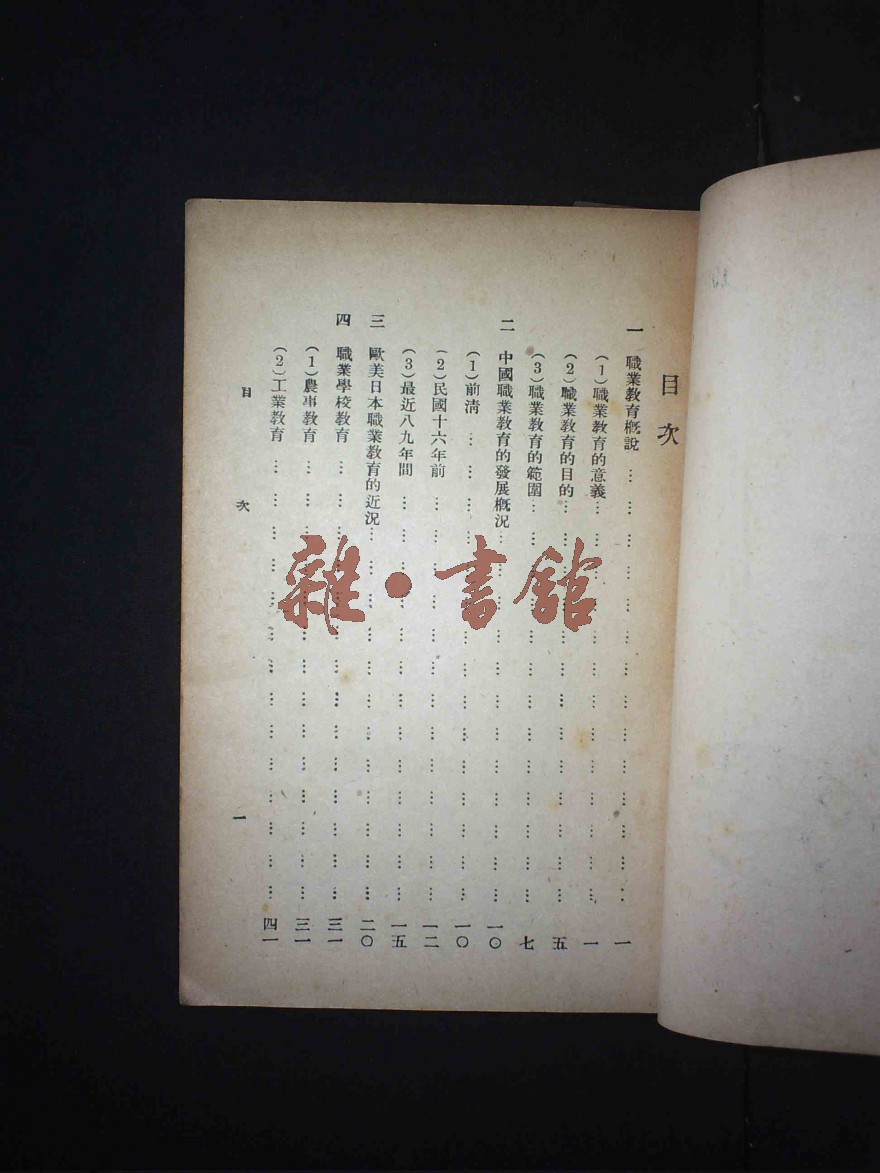 目次
一 職業教育概說 … … … … … … … … … … … … … … 一
(1)職業教育的意義… … … … … … … … … … … … … 一
(2)職業教育的目的… … … … … … … … … … … … … 五
(3)職業教育的範圍… … … … … … … … … … … … … 七
二 中國職業教育的發展概況… … … … … … … … … … … … 一〇
(1)前清 … … … … … … … … … … … … … … … 一〇
(2)民國十六年前 … … … … … … … … … … … … … 一二
(3)最近八九年間 … … … … … … … … … … … … … 一五
三 歐美日本職業教育的近況… … … … … … … … … … … … 二〇
四 職業學校教育 … … … … … … … … … … … … … … 三一
(1)農事教育 … … … … … … … … … … … … … … 三一
(2)工業教育 … … … … … … … … … … … … … … 四一
目次 一
雜•書館